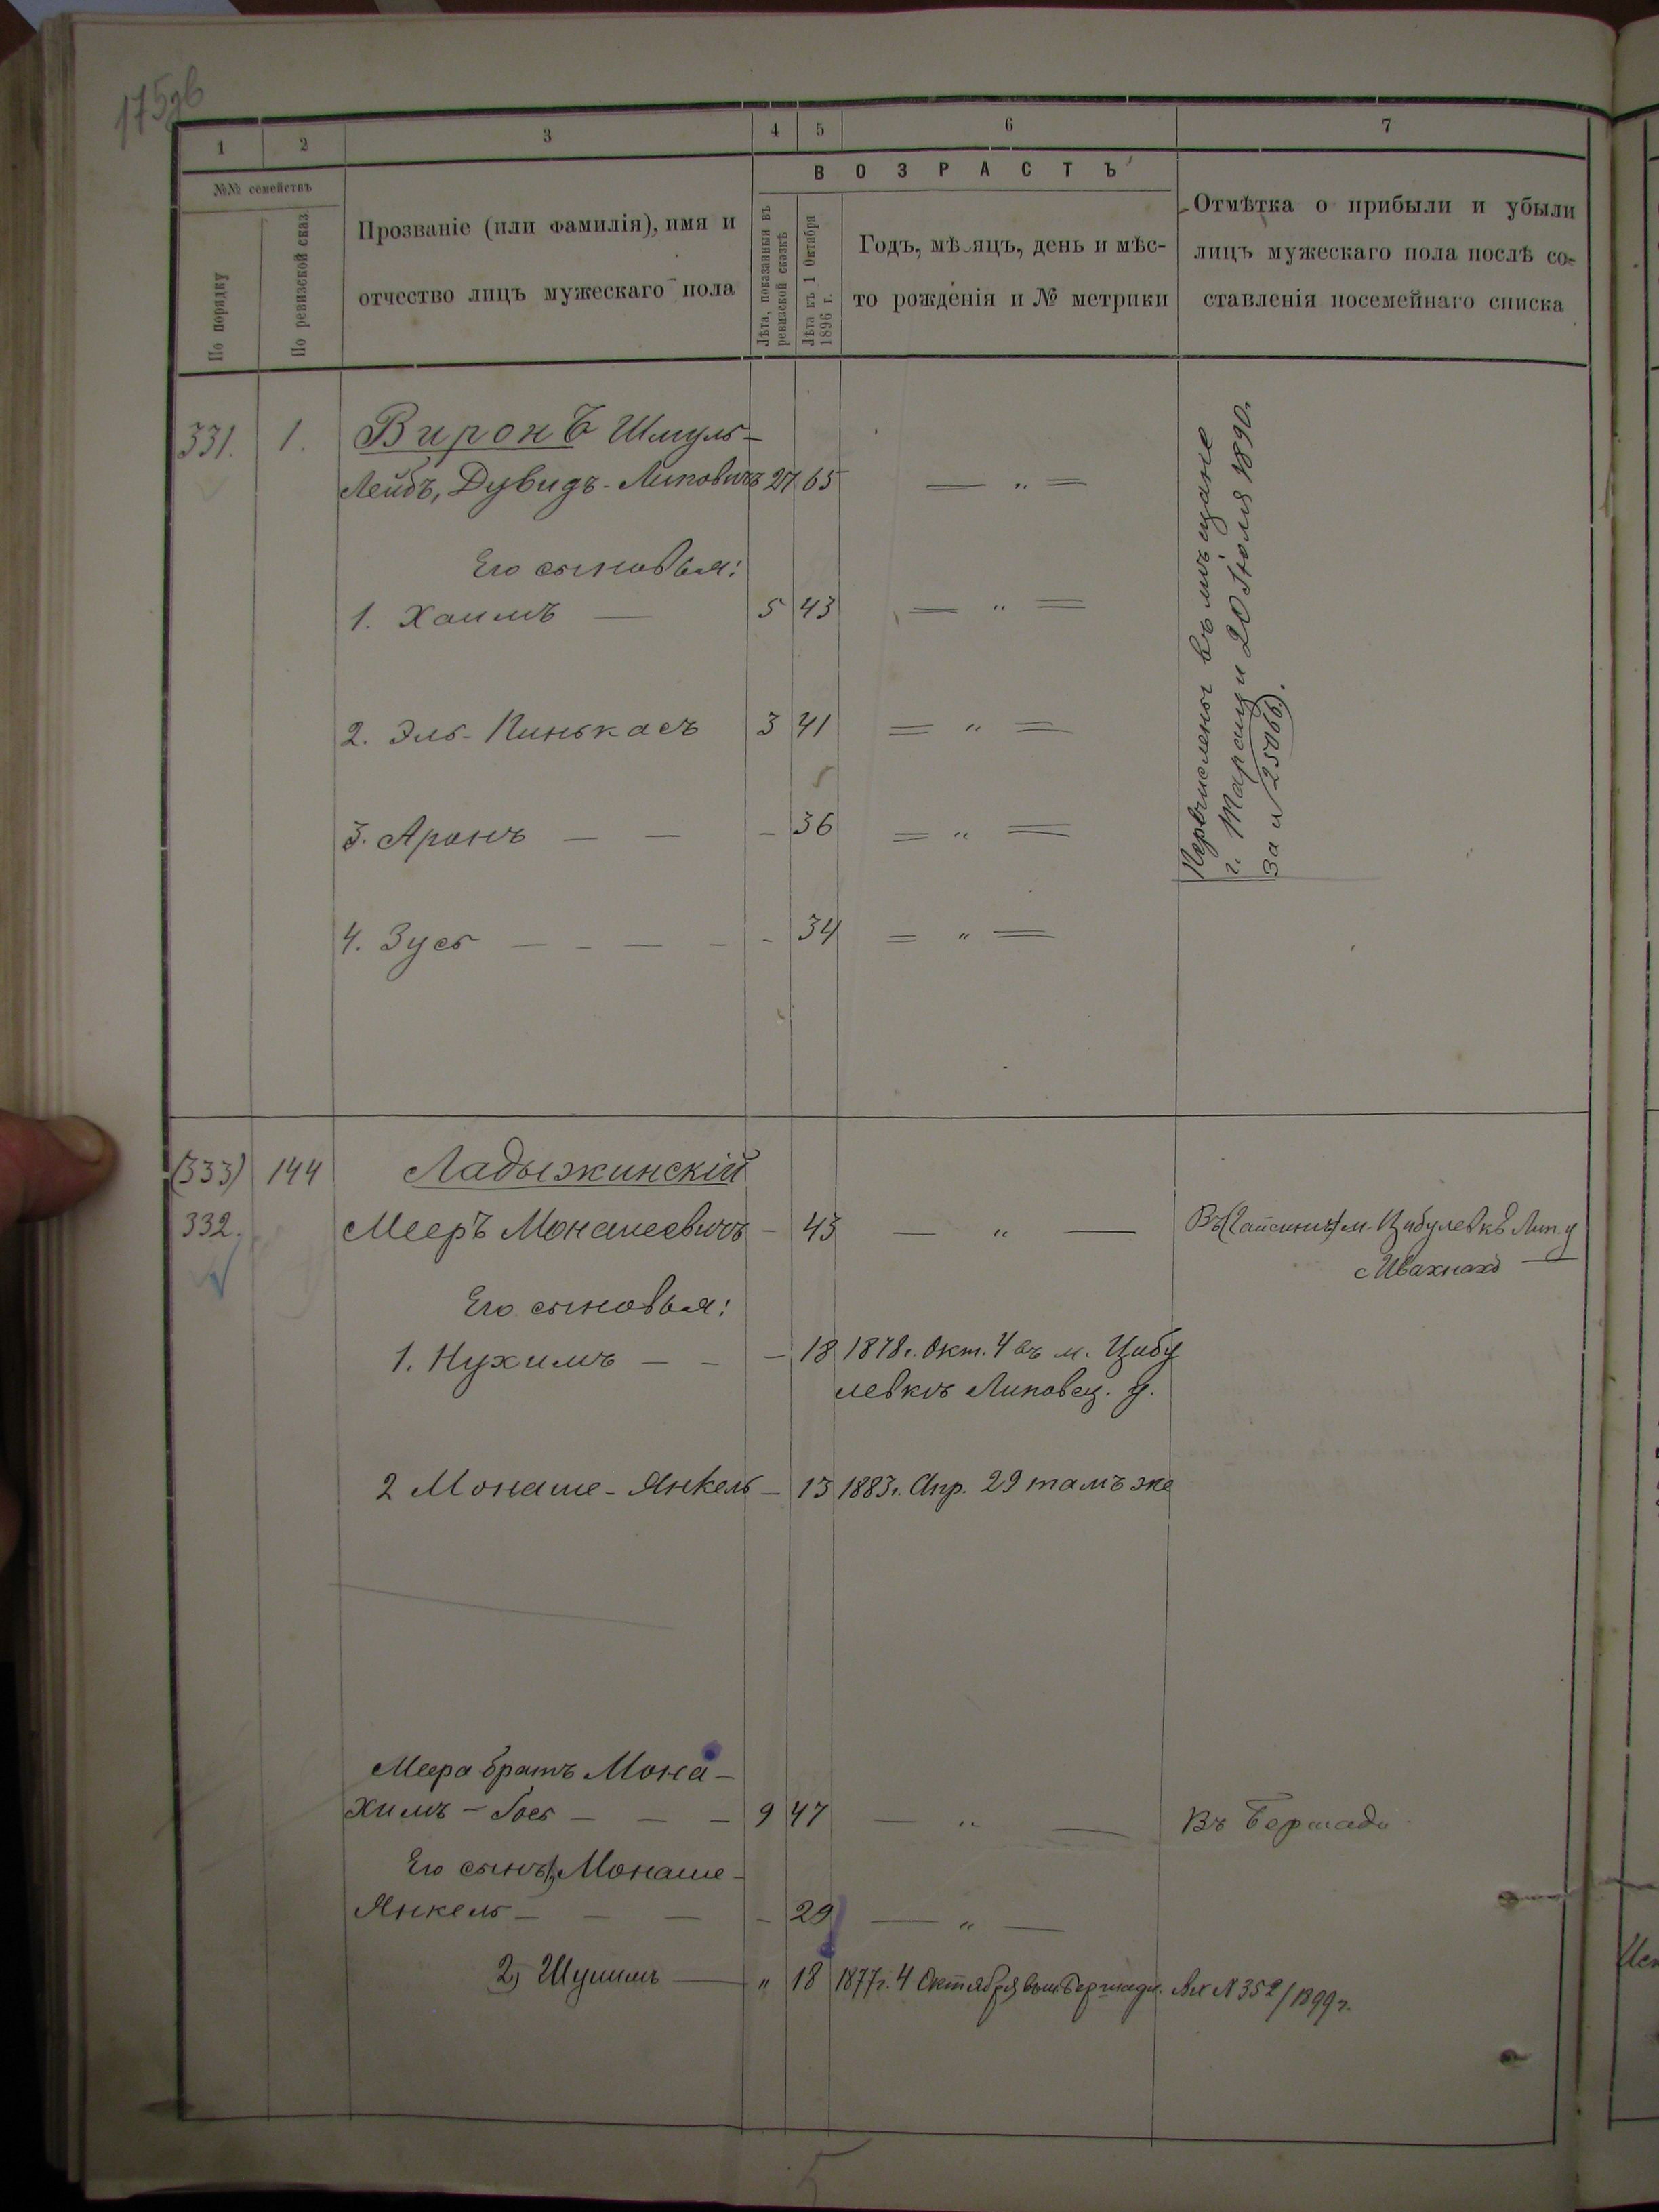 175об
1 2 3 4 5 6 7
№№ семействъ
По порядку
По ревизской сказ
Прозваніе (или фамилія), имя и
отчество лицъ мужескаго пола
ВОЗРАСТЪ
Лѣта, показанныя въ
ревизской сказкѣ
Лѣта къ 1 Октября
1896 г.
Годъ, мѣсяцъ, день и мѣс-
то рожденія и № метрики
Отмѣтка о прибыли и убыли
лицъ мужескаго пола послѣ со-
ставленія посемейнаго списка
331. 1. Виронъ Шмуль-
Лейбъ, Дувидъ-Липовичъ 27 65 — „ —
Его сыновья:
1. Хаимъ — 5 43 — „ —
2. Эль-Пинькасъ 3 41 — „ —
3. Аронъ — — - 36 — „ —
4. Зусь — - — - - 34 — „ —
Перечислены въ мѣщане
г. Таращи 20 Іюля 1890.
за № 25066).
(333) 144 Ладыжинскій
332. Мееръ Монашевичъ - 43 — „ — Въ (Гайсинѣ) м. Цибулевкѣ Лип. у
с Ивахнахъ
Его сыновья:
1. Нухимъ — - - 18 1878г. Окт. 4 въ м. Цибу
левкѣ Липовец. у.
2 Монаше-Янкель - 13 1883г. Апр. 29 тамъ же
Меера братъ Мона-
химъ - Іось — — — 9 47 — „ — Въ Бершади
Его сынъ 1, Монаше-
Янкель — — — - 29 — „ —
2, Шулимъ — „ 18 1877г. 4 Октября въ м. Бершади. № 352/1899г.